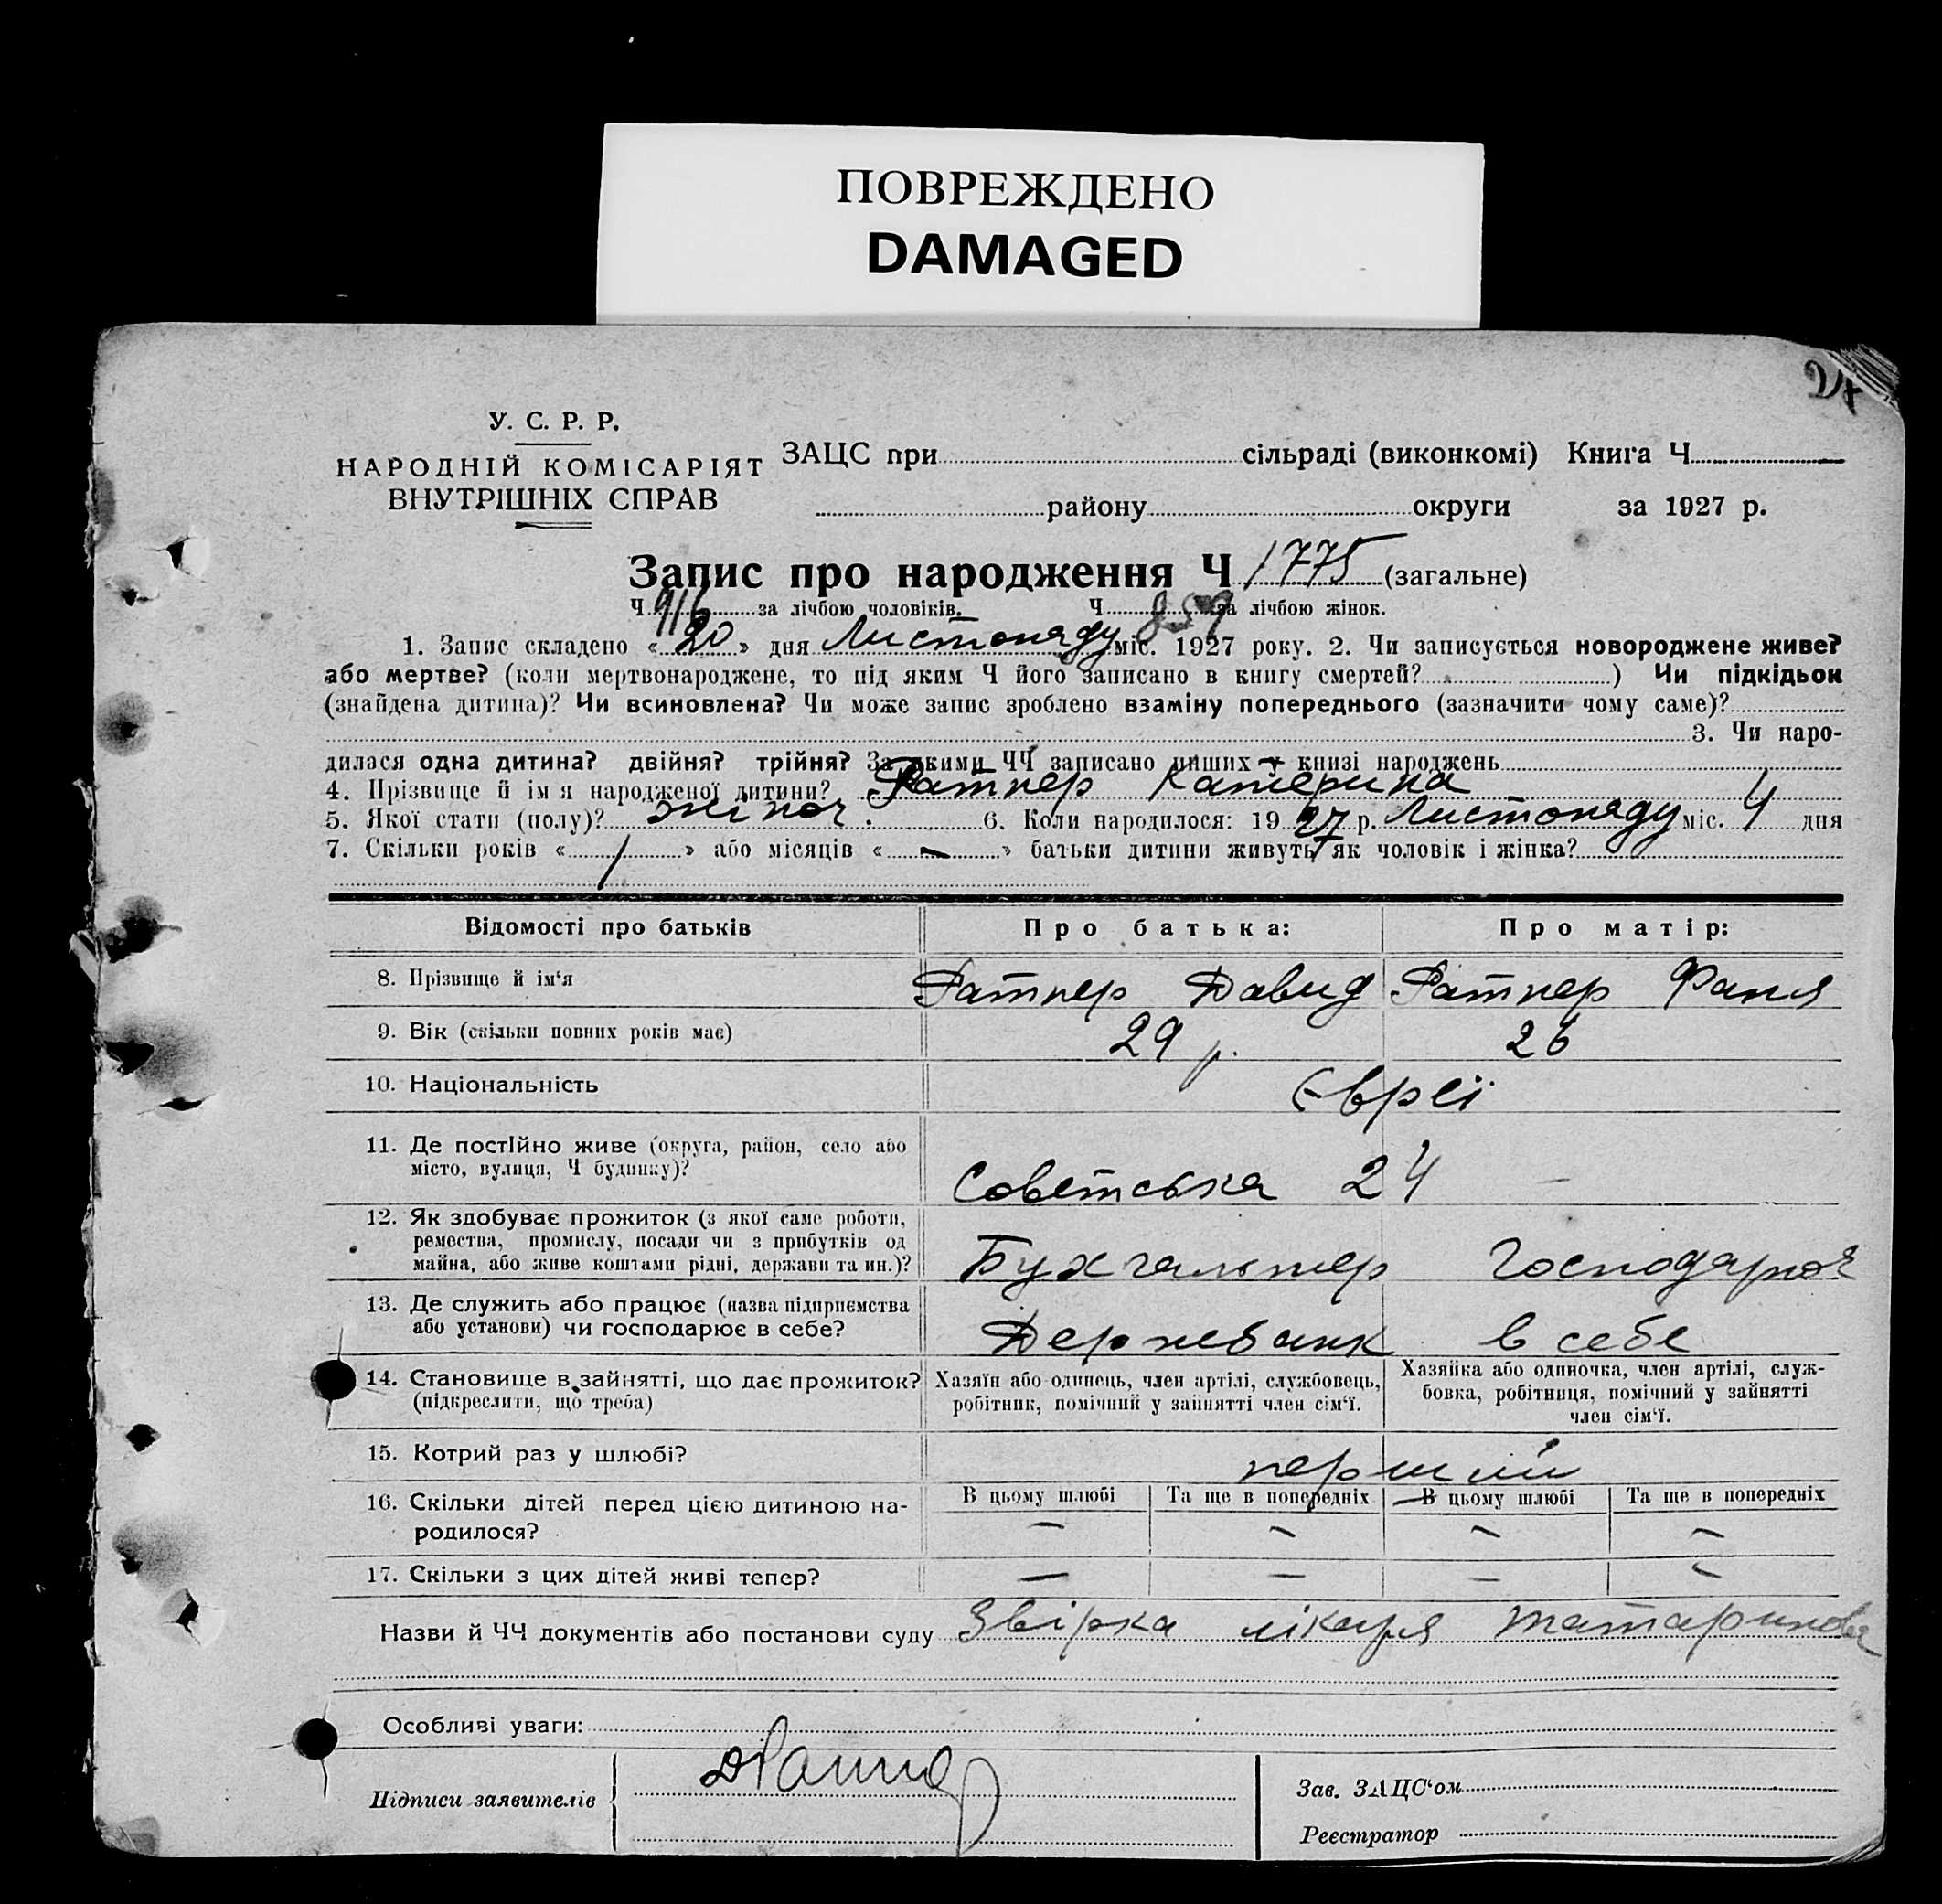 ПОВРЕЖДЕНО
DAMAGED
24
У. С. Р. Р.
НАРОДНІЙ КОМІСАРІЯТ
ВНУТРІШНІХ СПРАВ
ЗАЦС при сільраді (виконкомі) Книга Ч
району округи за 1927 р.
Запис про народження Ч 1775 (загальне)
Ч 916 за лічбою чоловіків. Ч 859 за лічбою жінок.
1. Запис складено « 20 » дня Листопаду міс. 1927 року. 2. Чи записується новороджене живе?
або мертве? (коли мертвонароджене, то під яким Ч його записано в книгу смертей? ) Чи підкідьок
(знайдена дитина)? Чи всиновлена? Чи може запис зроблено взаміну попереднього (зазначити чому саме)?
3. Чи наро-
дилася одна дитина? двійня? трійня? За якими ЧЧ записано инших у книзі народжень
4. Прізвище й ім я народженої дитини? Ратнер Катерина
5. Якої стати (полу)? жіноч. 6. Коли народилося: 19 27 р. Листопаду міс. 4 дня
7. Скільки років « 1 » або місяців « — » батьки дитини живуть як чоловік і жінка?
Відомості про батьків Про батька: Про матір:
8. Прізвище й ім‘я Ратнер Давид Ратнер Фаня
9. Вік (скільки повних років має) 29 р. 26
10. Національність Євреї
11. Де постійно живе (округа, район, село або
місто, вулиця, Ч будинку)? Совєтська 24 —
12. Як здобуває прожиток (з якої саме роботи,
ремества, промислу, посади чи з прибутків од
майна, або живе коштами рідні, держави та ин.)? Бухгальтер Господарює
13. Де служить або працює (назва підприємства
або установи) чи господарює в себе? Держбанк в себе
14. Становище в зайнятті, що дає прожиток?
(підкреслити, що треба)
Хазяїн або одинець, член артілі, службовець,
робітник, помічний у зайнятті член сім‘ї.
Хазяйка або одиночка, член артілі, служ-
бовка, робітниця, помічний у зайнятті
член сім‘ї.
15. Котрий раз у шлюбі? перший
16. Скільки дітей перед цією дитиною на-
родилося?
В цьому шлюбі Та ще в попередніх В цьому шлюбі Та ще в попередніх
— — — —
17. Скільки з цих дітей живі тепер? — — — —
Назви й ЧЧ документів або постанови суду Звірка лікаря Татаринова
Особливі уваги:
Підписи заявителів ДРатнер
Зав. ЗАЦС‘ом
Реєстратор